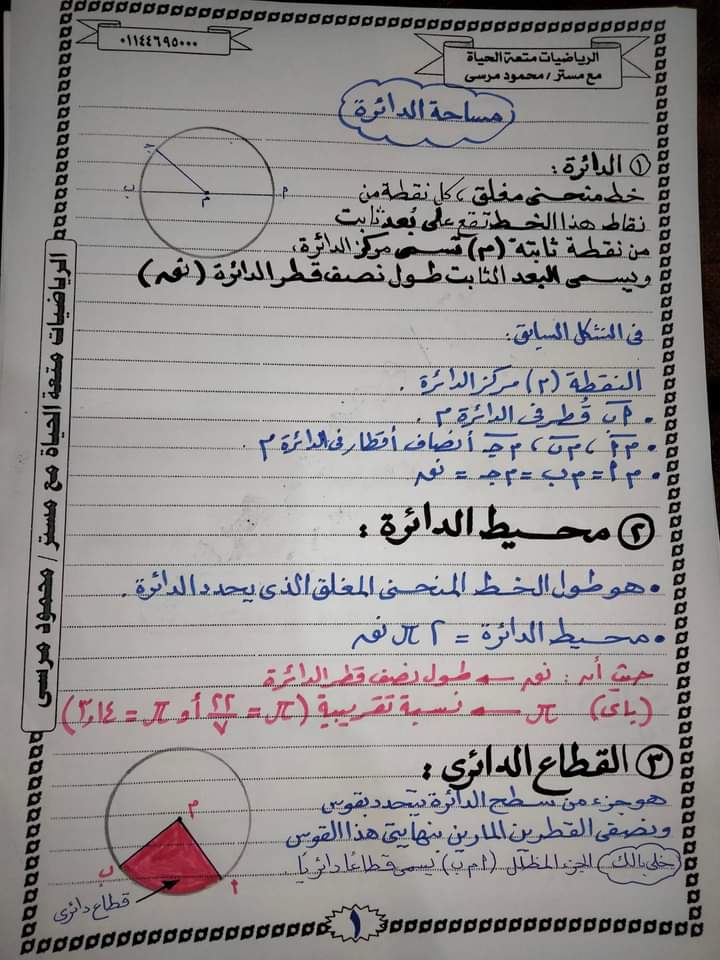 الرياضيات متعة الحياة
مع مستر / محمود مرسى
٠١١٤٤٦٩٥٠٠٠
مساحة الدائرة
① الدائرة :
خط منحنى مغلق ، كل نقطة من
نقاط هذا الخط تقع على بُعد ثابت
من نقطة ثابتة (م) تسمى مركز الدائرة،
ويسمى البعد الثابت طول نصف قطر الدائرة (نق)
ج
ب
م
أ
فى الشكل السابق :
النقطة (م) مركز الدائرة .
• أب قُطر فى الدائرة م .
• مأ ، مب ، مج أنصاف أقطار فى الدائرة م
• م أ = م ب = م ج = نق
② محيط الدائرة :
• هو طول الخط المنحنى المغلق الذى يحدد الدائرة .
• محيط الدائرة = ٢ π نق
حيث أن : نق ← طول نصف قطر الدائرة
(باى) π ← نسبة تقريبية (π = ٢٢/٧ أو π = ٣,١٤)
③ القطاع الدائرى :
هو جزء من سطح الدائرة يتحدد بقوس
ونصفى القطرين المارين بنهايتى هذا القوس
خلى بالك الجزء المظلل (أ م ب) يسمى قطاعًا دائريًا .
م
ب
أ
قطاع دائرى
١
الرياضيات متعة الحياة مع مستر / محمود مرسى